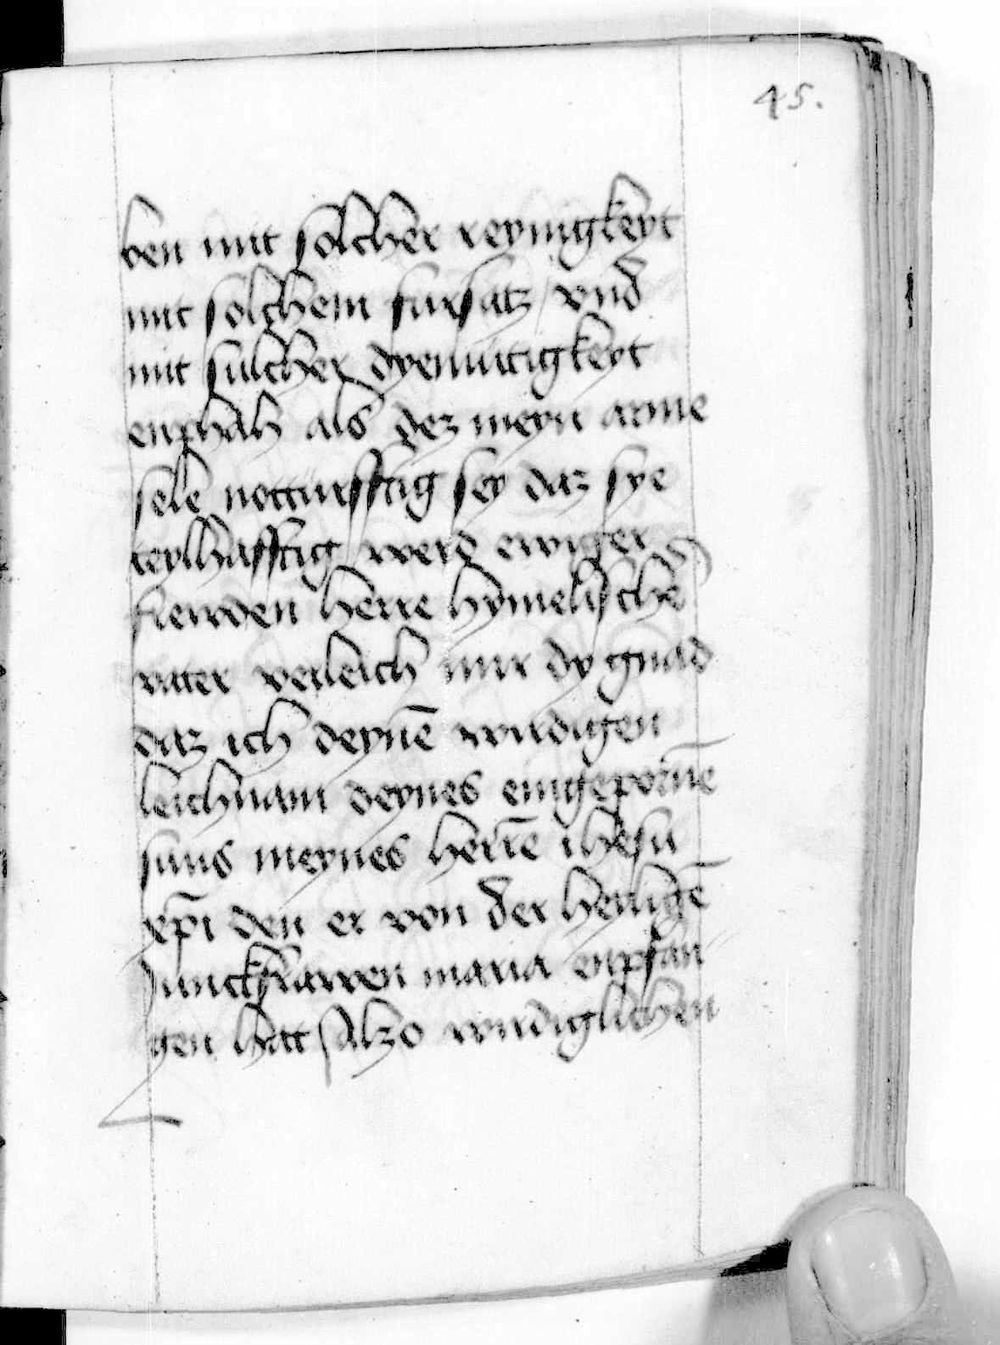 45.
ben mit solcher reynigkeyt
mit solchem fursatz / vnd
mit sulcher dyemutigkeyt
enphah als dez meyn arme
sele notturfftig sey daz sye
teylhafftig werd ewiger
frewden herre hymelischē
vater verleich mir dy gnad
daz ich deynē wirdigen
leichnam deynes eingepornē
suns meynes herrē ihesu
xp̄i den er von der heyligē
Junckfrawen maria enpfan
gen hatt / alzo wirdiglichen